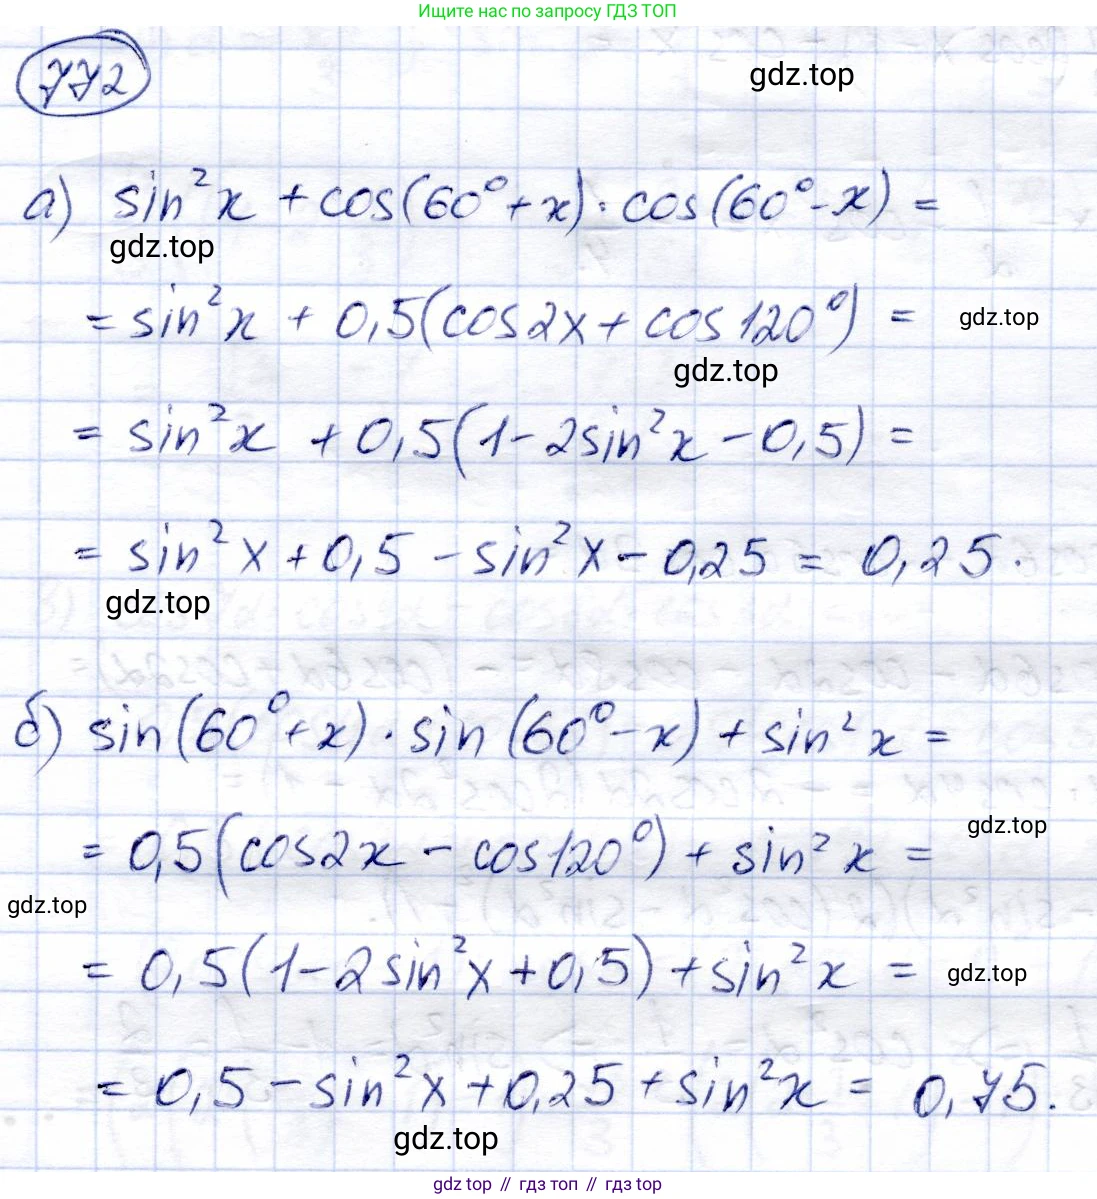 Ищите нас по запросу ГДЗ ТОП
772
gdz.top
а) sin²x + cos(60° + x) · cos(60° - x) =
gdz.top
= sin²x + 0,5(cos2x + cos120°) =
gdz.top
gdz.top
= sin²x + 0,5(1 - 2sin²x - 0,5) =
= sin²x + 0,5 - sin²x - 0,25 = 0,25.
gdz.top
б) sin(60° + x) · sin(60° - x) + sin²x =
gdz.top
= 0,5(cos2x - cos120°) + sin²x =
gdz.top
= 0,5(1 - 2sin²x + 0,5) + sin²x =
gdz.top
= 0,5 - sin²x + 0,25 + sin²x = 0,75.
gdz.top
gdz top // гдз топ // гдз top